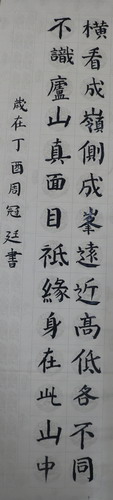 橫看成嶺側成峯遠近高低各不同
不識廬山真面目祗緣身在此山中
歲在丁酉周冠廷書